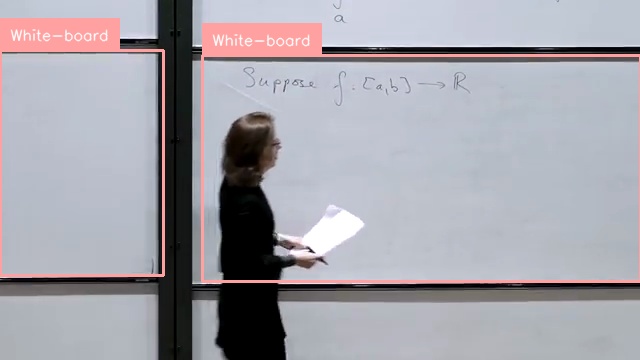 a
White-board
White-board
Suppose f: [a,b] → ℝ